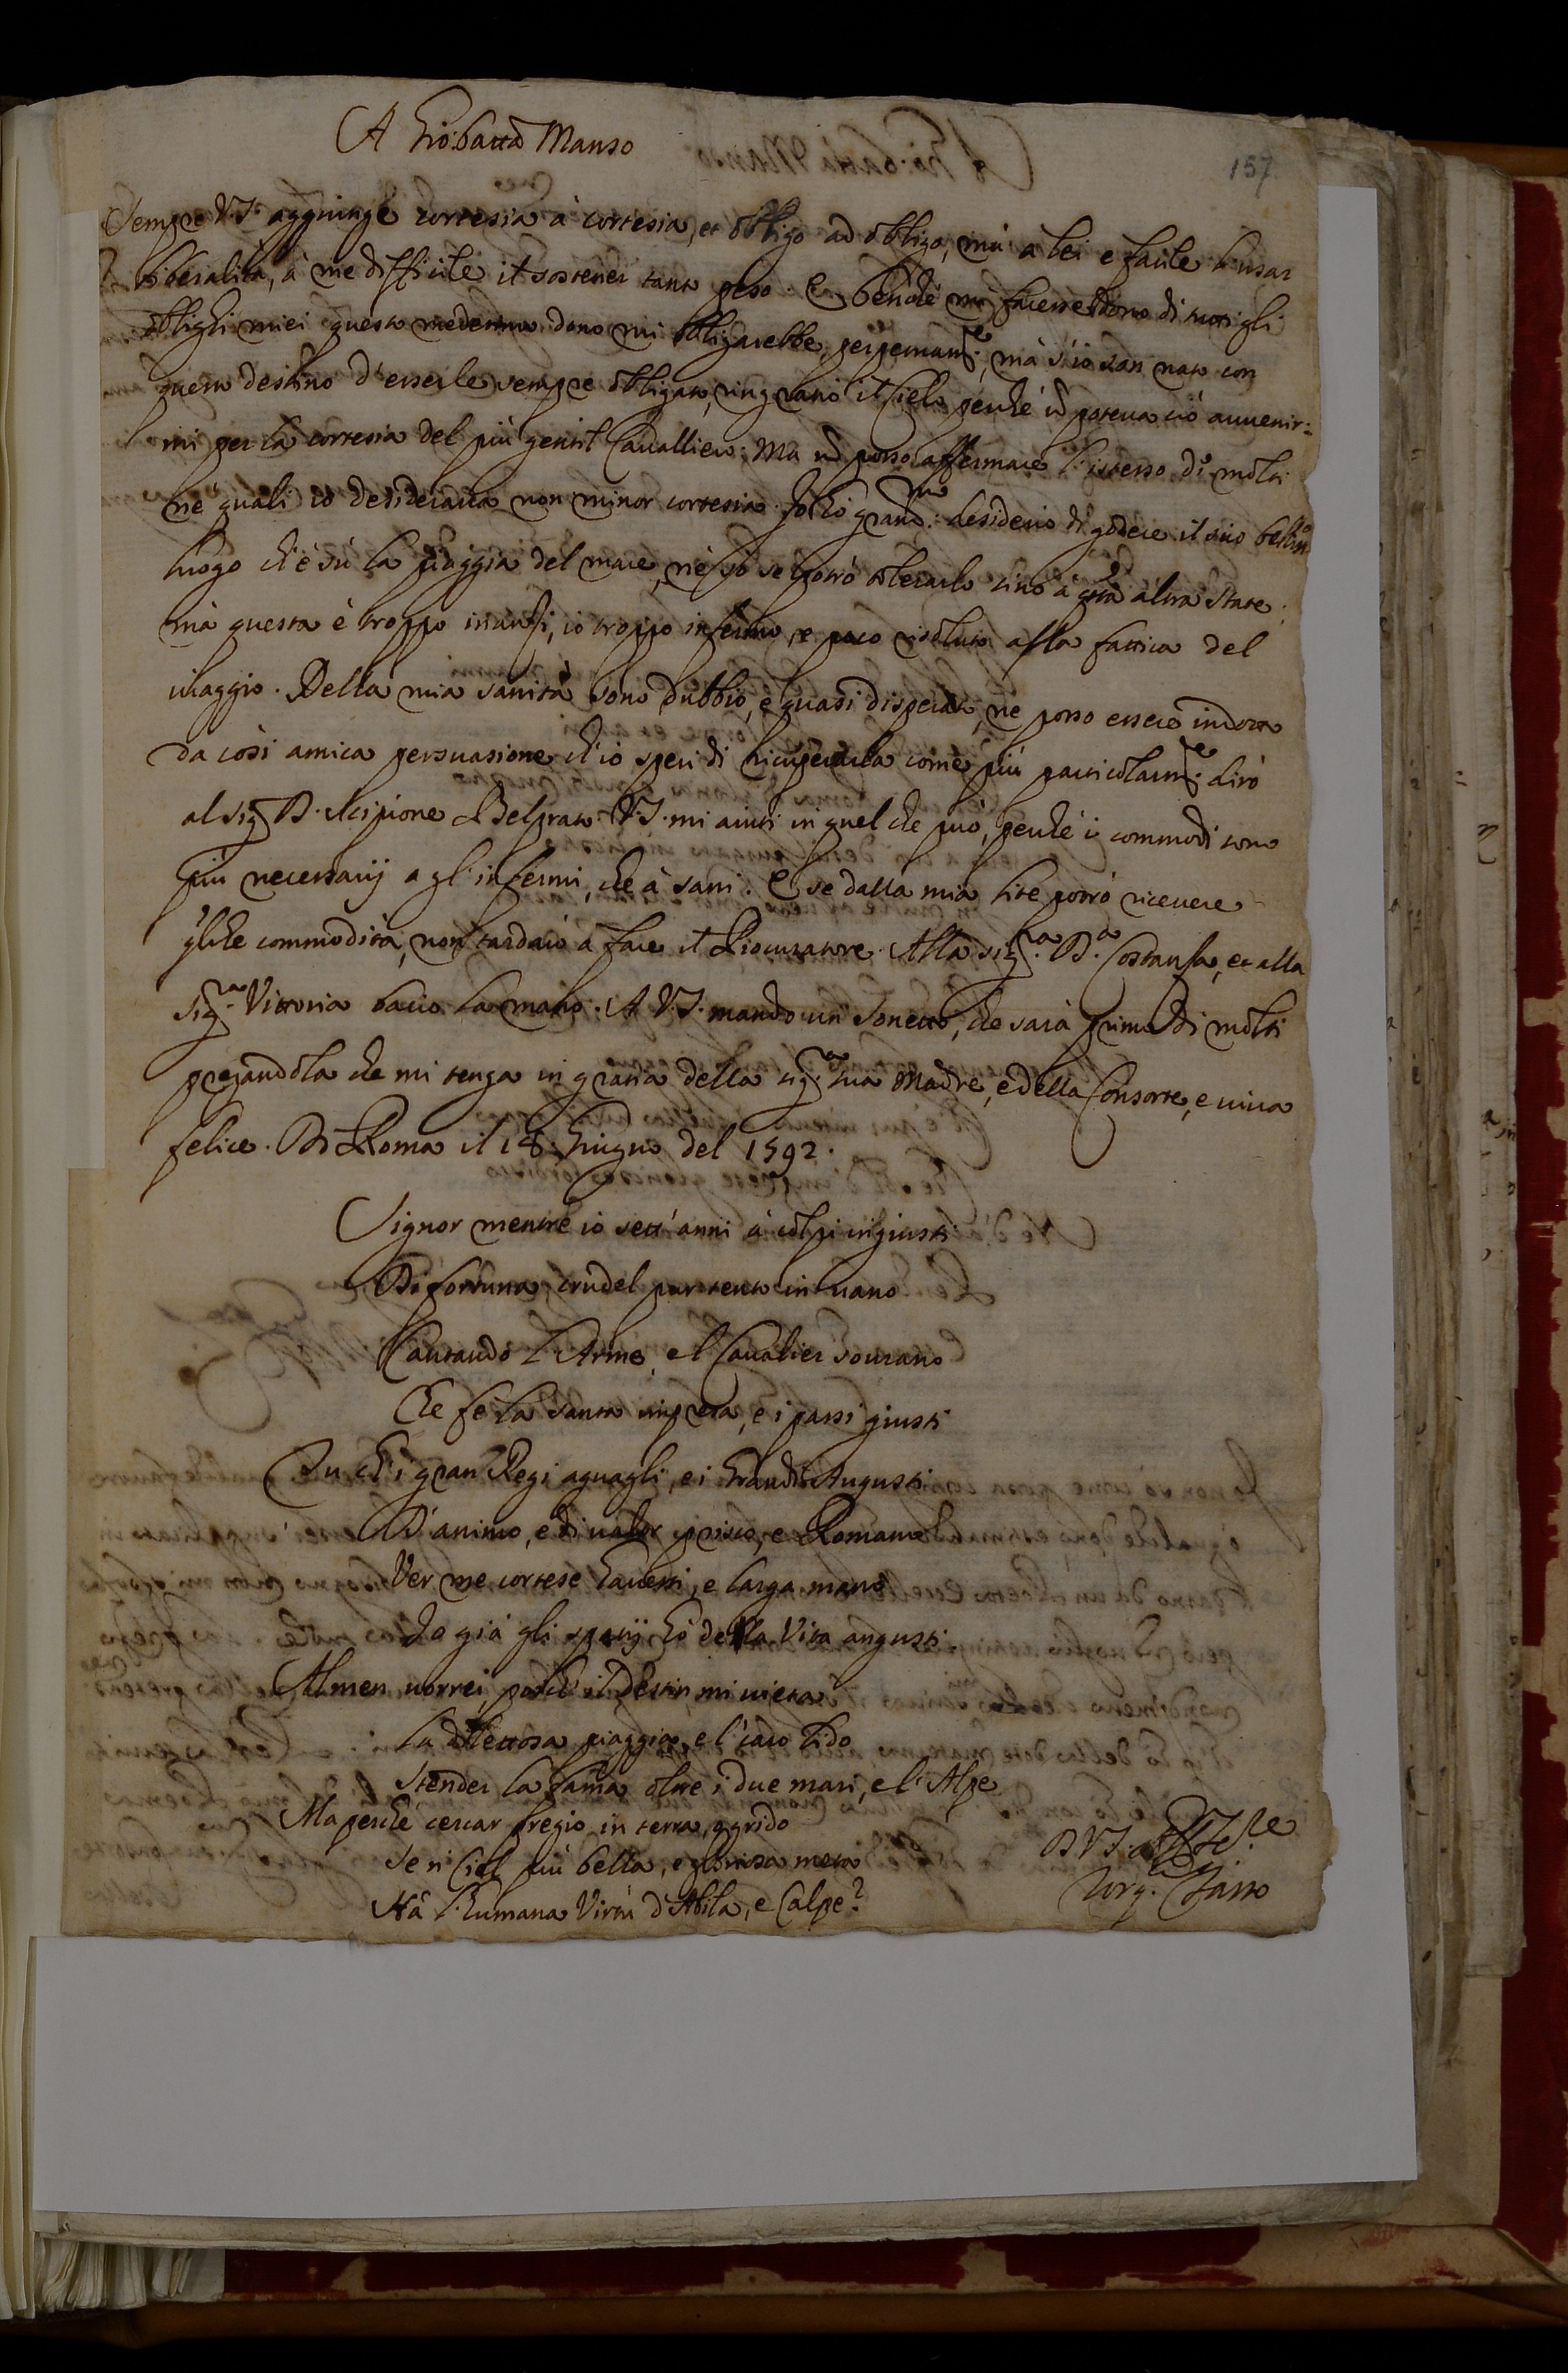 A Gio: batta Manso
157
Sempre V.S. aggiunge cortesia à cortesia, et obbligo ad obbligo, mà a lei e facile l'usar
liberalità, à me difficile il sostener tanto peso. E benche mi facesse dono di tutti gli
oblighi miei questo medesimo dono mi obligarebbe perpetuam.te, mà s'io son nato con
questo destino d'esserle sempre obligato, ringratio il Cielo perché nõ poteva ciò auuenir=
mi per la cortesia del più gentil Cavalliero. Ma nõ posso affermare l'istesso di molti
ne quali io desiderava non minor cortesia. Io hò grand.mo desiderio di godere il suo bellm.o
luogo ch'è sù la piaggia del mare, nè sò se potrò tolerarlo sino à qta altra state.
mà questa è troppo inanzi, io troppo infermo, e poco risoluto alla fattica del
viaggio. Della mia sanità sono dubbio, e quasi disperato, ne posso essere indotto
da così amica persuasione ch'io speri di ricuperarla come più particolarm.te dirò
al Sig.r D. Scipione Belprato. V.S. mi aiuti in quel che può, perché i commodi sono
più necessarij a gl'infermi, che à sani. E se dalla mia lite potrò ricevere
qlche commodità, non tardarò à fare il Procuratore. Alla Sig.ra D.a Costanza, et alla
Sig.ra Vittoria bacio la mano. A V.S. mando un Sonetto, che sarà primo di molti
pregandola che mi tenga in gratia della sig.ra sua Madre, e della Consorte, e viva
felice. Di Roma il 18 Giugno del 1592.
Signor mentre io sett'anni à colpi ingiusti
Di fortuna crudel pur tento in vano
Cantando l'Arme, e'l Cavalier sovrano
Che fe la santa impresa, e i passi giusti
Tu ch'i gran Regi aguagli, e i Grandi Augusti
D'animo, e di valor prisco, e Romano
Ver me cortese havesti, e larga mano
Io già gli spatij hò della Vita angusti
Almen vorrei, poich'il Destin mi vieta
La dilettosa piaggia, e'l caro lido
Stender la fama oltre i due mari, e l'Alpe
Ma perche cercar pregio in terra, o grido
Se'n Ciel più bella, e gloriosa meta
Hà l'humana Virtù d'Abila, e Calpe?
D V.S.
Torq. Tasso